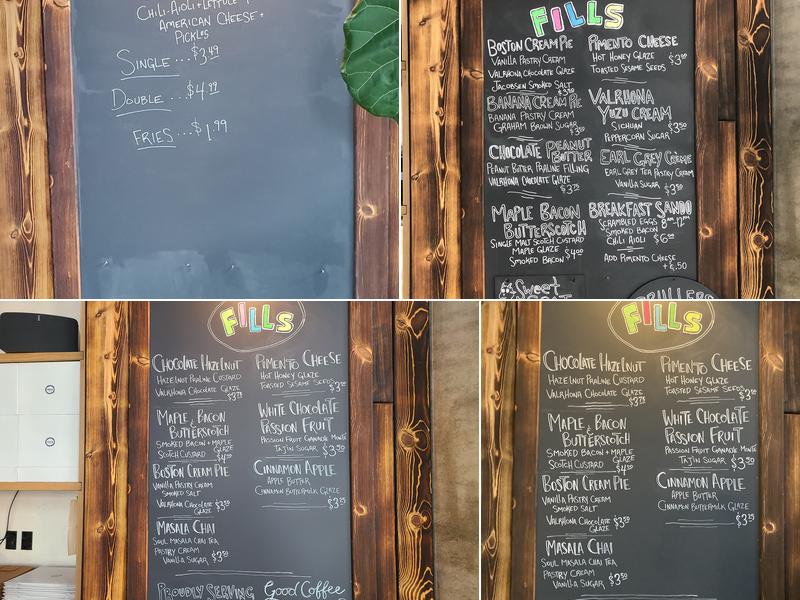 CHILI-AIOLI + LETTUCE +
AMERICAN CHEESE +
PICKLES
SINGLE ... $3.49
DOUBLE ... $4.99
FRIES ... $1.99
FILLS
BOSTON CREAM PIE
VANILLA PASTRY CREAM
VALRHONA CHOCOLATE GLAZE
JACOBSEN SMOKED SALT
BANANA CREAM PIE
BANANA PASTRY CREAM
GRAHAM BROWN SUGAR
CHOCOLATE PEANUT
BUTTER
PEANUT BUTTER PRALINE FILLING
VALRHONA CHOCOLATE GLAZE
$3.75
MAPLE BACON
BUTTERSCOTCH
SINGLE MALT SCOTCH CUSTARD
MAPLE GLAZE
SMOKED BACON $4.00
Sweet
PIMENTO CHEESE
HOT HONEY GLAZE
TOASTED SESAME SEEDS
VALRHONA
YUZU CREAM
SICHUAN
PEPPERCORN SUGAR $3.50
EARL GREY CRÈME
EARL GREY TEA PASTRY CREAM
VANILLA SUGAR $3.50
BREAKFAST SANDO
SCRAMBLED EGGS 8AM-12PM
SMOKED BACON
CHILI AIOLI $6.00
ADD PIMENTO CHEESE
+ $.50
FILLS
CHOCOLATE HAZELNUT
HAZELNUT PRALINE CUSTARD
VALRHONA CHOCOLATE GLAZE
$3.75
MAPLE & BACON
BUTTERSCOTCH
SMOKED BACON + MAPLE
SCOTCH CUSTARD GLAZE
BOSTON CREAM PIE
VANILLA PASTRY CREAM
SMOKED SALT
VALRHONA CHOCOLATE $3.50
GLAZE
MASALA CHAI
SOUL MASALA CHAI TEA
PASTRY CREAM
VANILLA SUGAR $3.50
PROUDLY SERVING Good Coffee
PIMENTO CHEESE
HOT HONEY GLAZE
TOASTED SESAME SEEDS
WHITE CHOCOLATE
PASSION FRUIT
PASSION FRUIT GANACHE MONTÉ
TAJIN SUGAR $3.50
CINNAMON APPLE
APPLE BUTTER
CINNAMON BUTTERMILK GLAZE
$3.25
FILLS
CHOCOLATE HAZELNUT
HAZELNUT PRALINE CUSTARD
VALRHONA CHOCOLATE GLAZE
$3.75
MAPLE & BACON
BUTTERSCOTCH
SMOKED BACON + MAPLE
SCOTCH CUSTARD GLAZE
BOSTON CREAM PIE
VANILLA PASTRY CREAM
SMOKED SALT
VALRHONA CHOCOLATE $3.50
GLAZE
MASALA CHAI
SOUL MASALA CHAI TEA
PASTRY CREAM
VANILLA SUGAR $3.50
PIMENTO CHEESE
HOT HONEY GLAZE
TOASTED SESAME SEEDS
WHITE CHOCOLATE
PASSION FRUIT
PASSION FRUIT GANACHE MONTÉ
TAJIN SUGAR $3.50
CINNAMON APPLE
APPLE BUTTER
CINNAMON BUTTERMILK GLAZE
$3.25